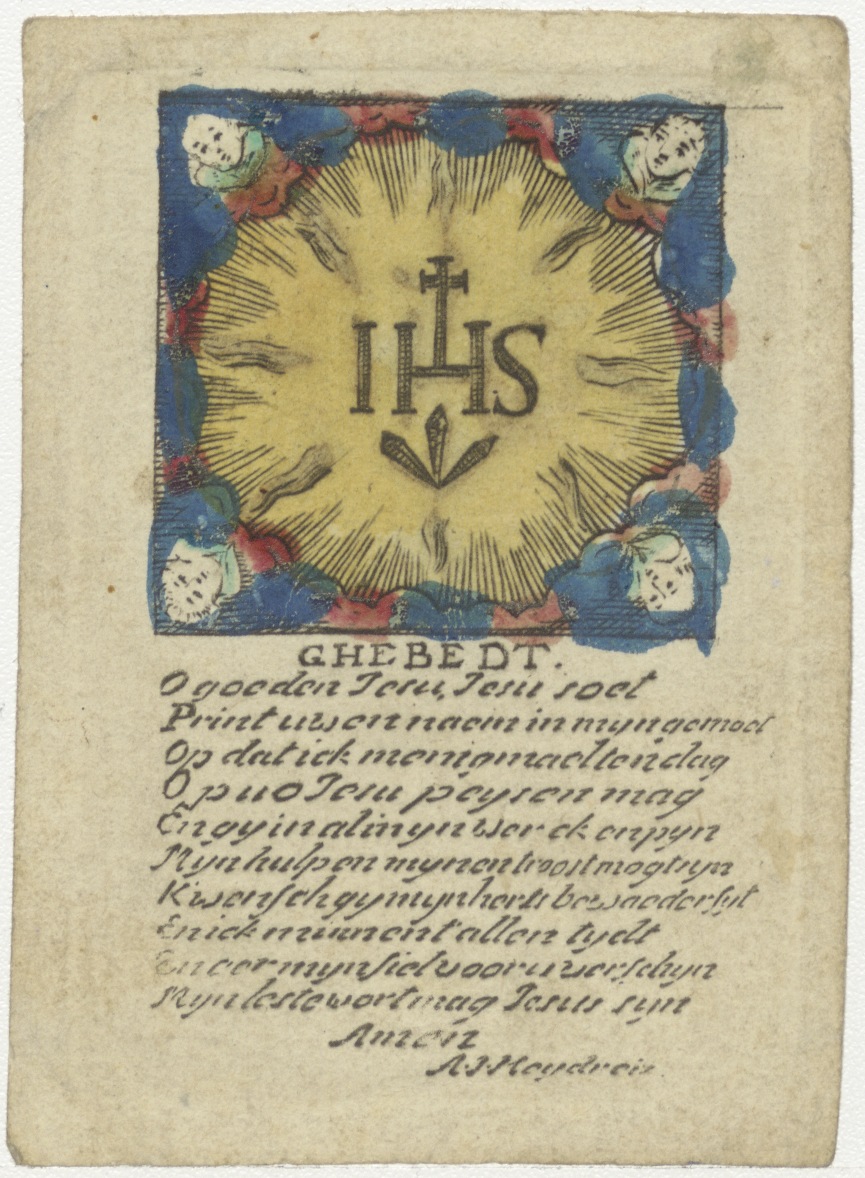 IHS
GHEBEDT.
O goeden Jesu, Jesu soet
Print uwen naem in myn gemoet
Op dat ick menigmael ten dag
Op u o Jesu peysen mag
En gy in al myn werck en pyn
Myn hulp en mynen troost mogt syn
K'wensch gy myn herte bewaeder syt
En ick minnen t'allen tydt
En eer myn siel voor u verschyn
Myn leste wort mag Jesus syn
Amen